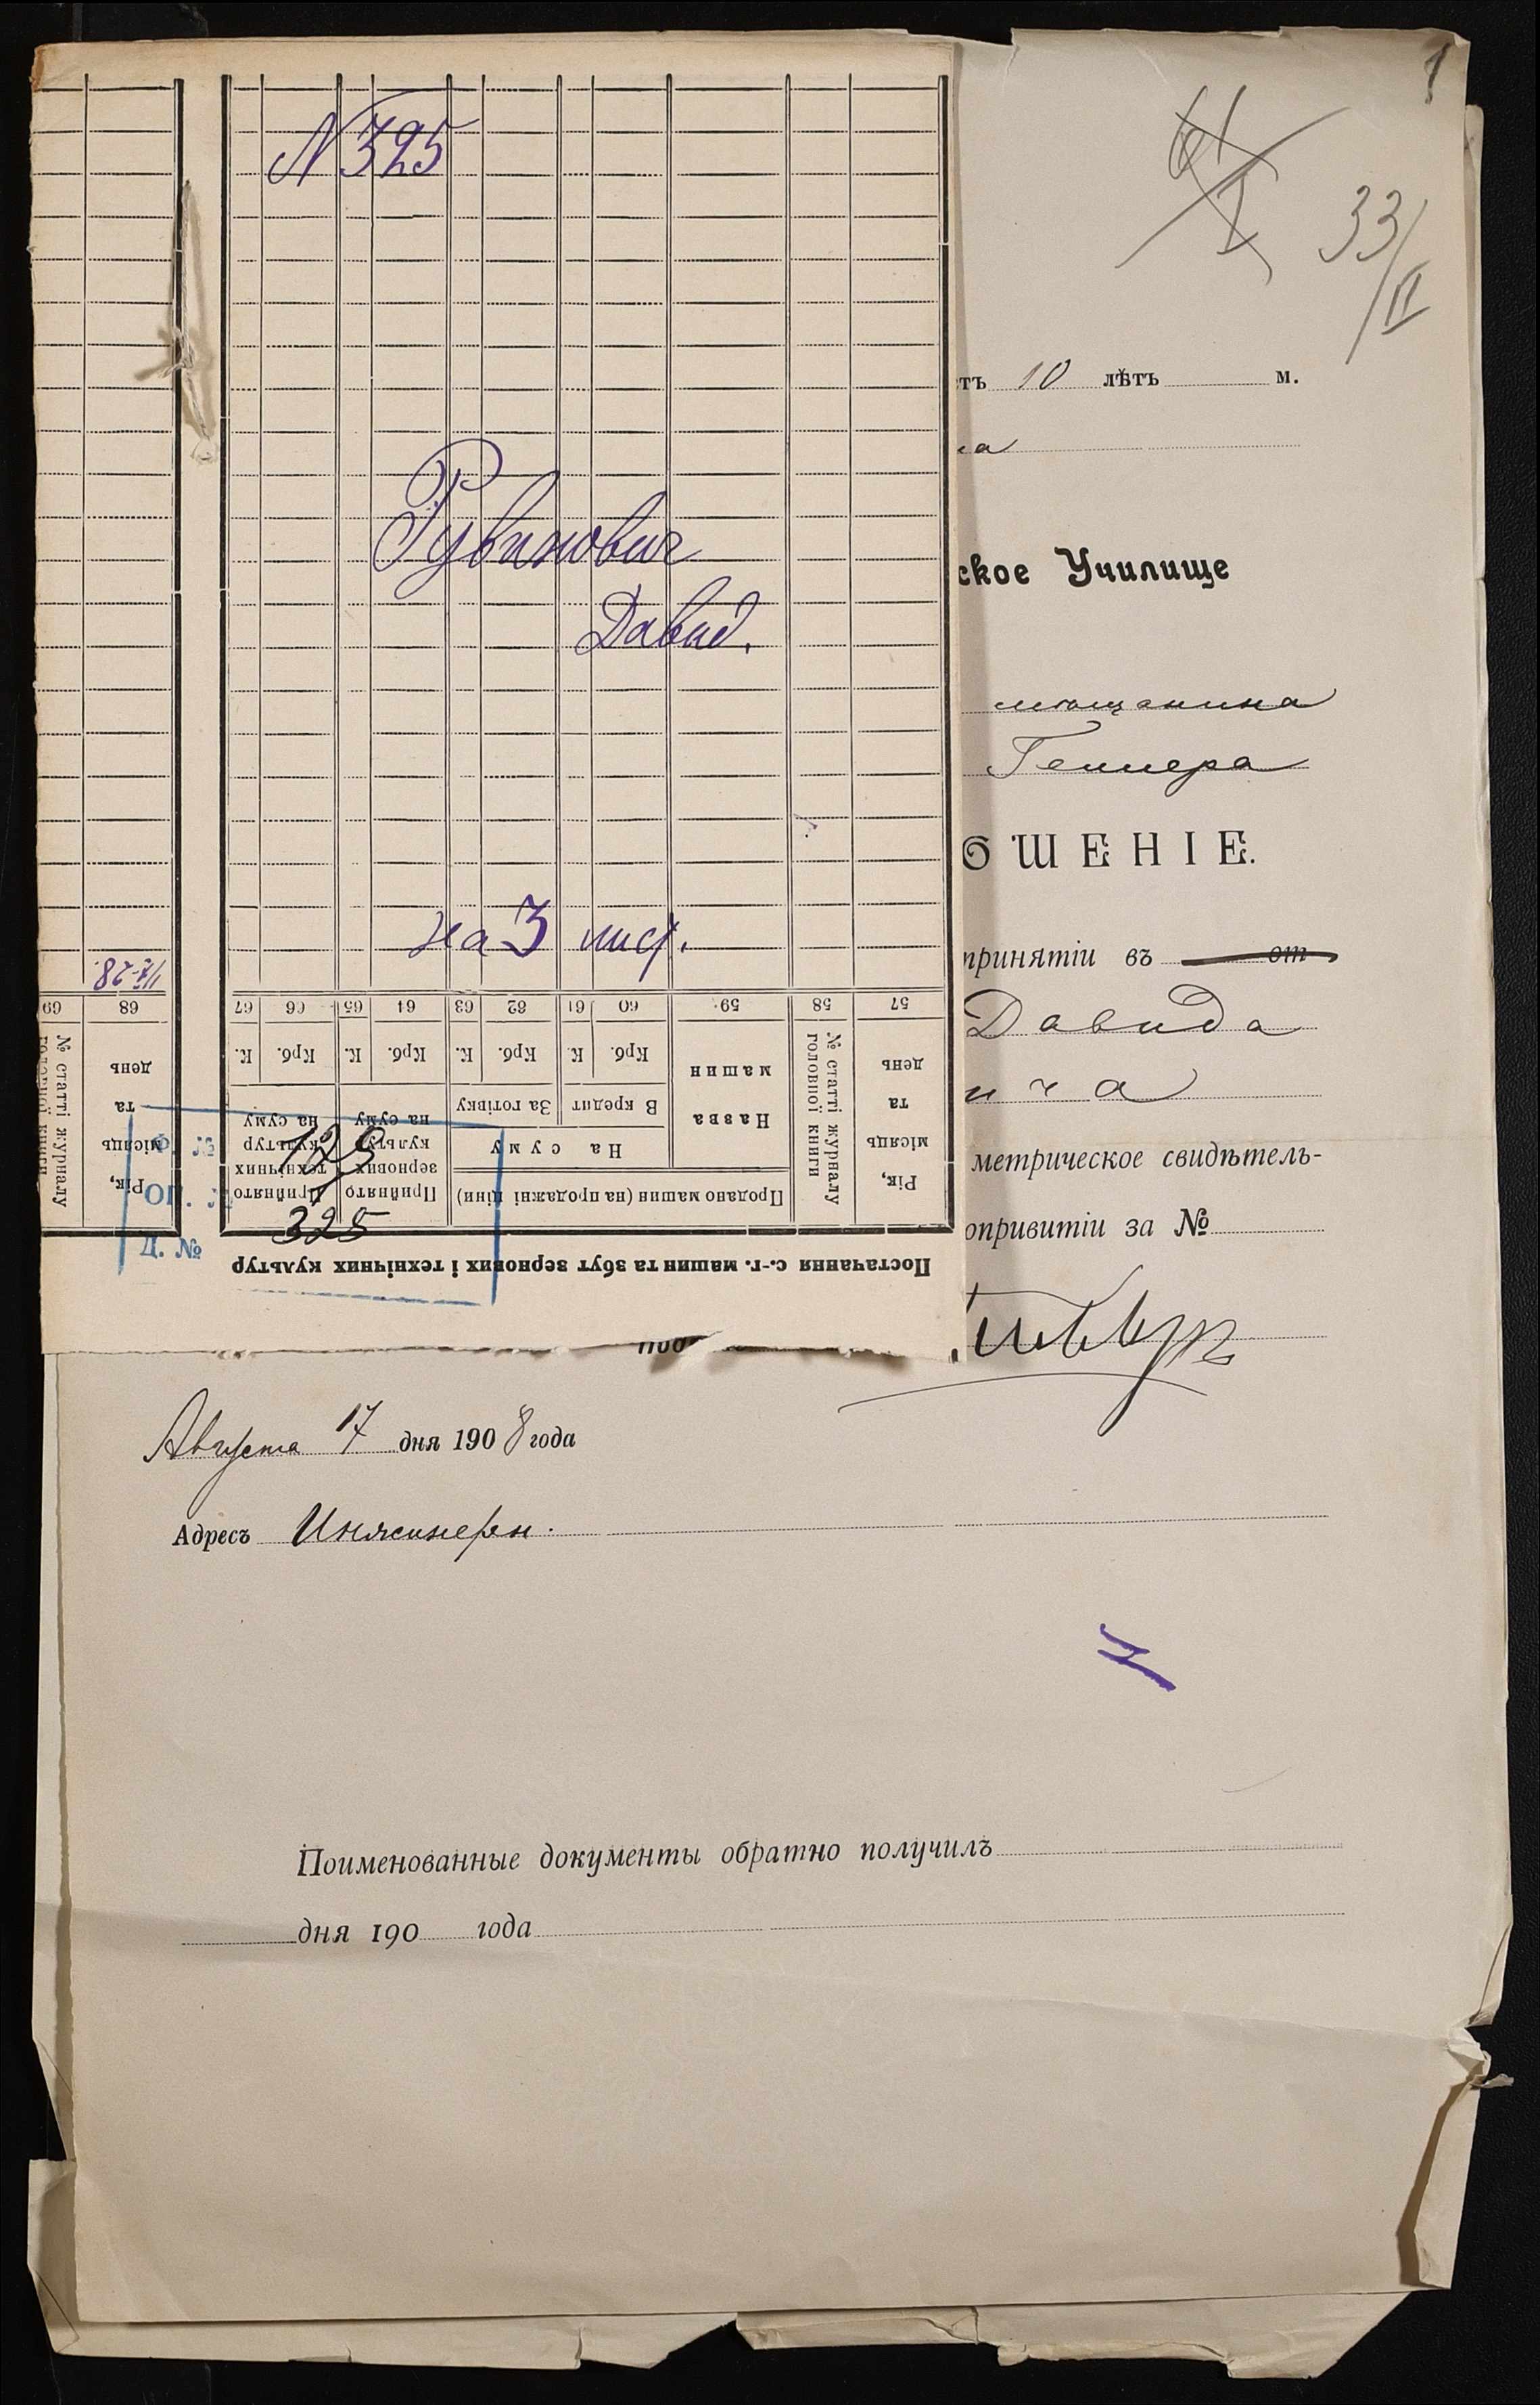 1
33/II
N 325
Рувинович
Давид.
на 3 лист.
68
69
67
66
65
64
63
62
61
60
59
58
57
Рік, місяць та день
№ статті журналу головної книги
К. Крб. К. Крб. К. Крб. К. Крб.
Назва машин
№ статті журналу головної книги
Рік, місяць та день
За готівку
В кредит
На суму
Прийнято технічних культур на суму
Прийнято зернових культур на суму
Продано машин (на продажні ціни)
Постачання с.-г. машин та збут зернових і технічних культур
Д. №
325
тъ 10 лѣтъ м.
ское Училище
мѣщанина
ОШЕНІЕ.
принятіи въ от
Давида
ича
метрическое свидѣтель-
опривитіи за №
Августа 17 дня 1908 года
Адресъ Инженерн.
Поименованные документы обратно получилъ
дня 190 года